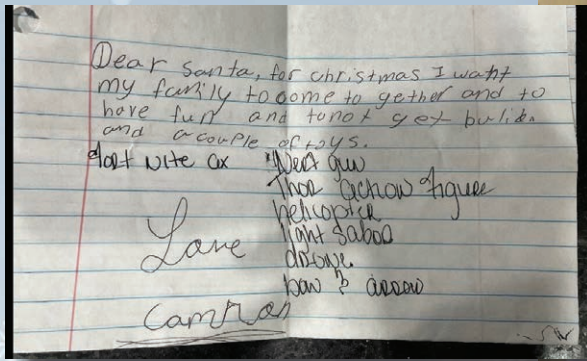 Dear Santa, for christmas I want
my family to come to gether and to
have fun and to not get bulid.
and a couple of toys.
fort nite ax Nerf gun
Thor action figure
helicopter
light saboo
drone
bow & arrow
Love
Camron